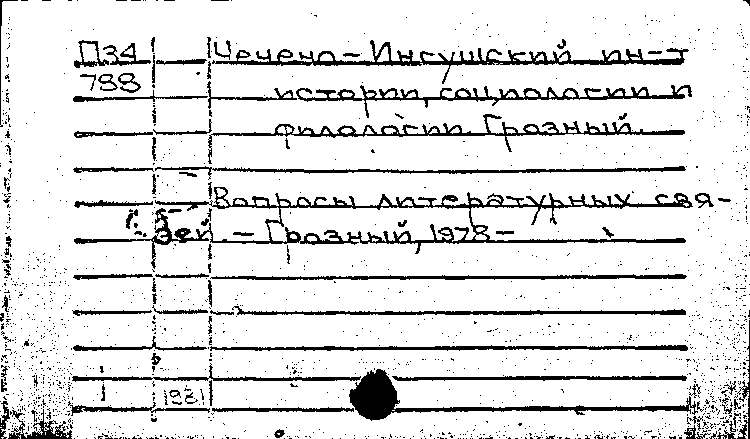 П34 Чечено-Ингушский ин-т
788 истории, социологии и
филологии. Грозный.
Вопросы литературных свя-
зей. - Грозный, 1978-
1981